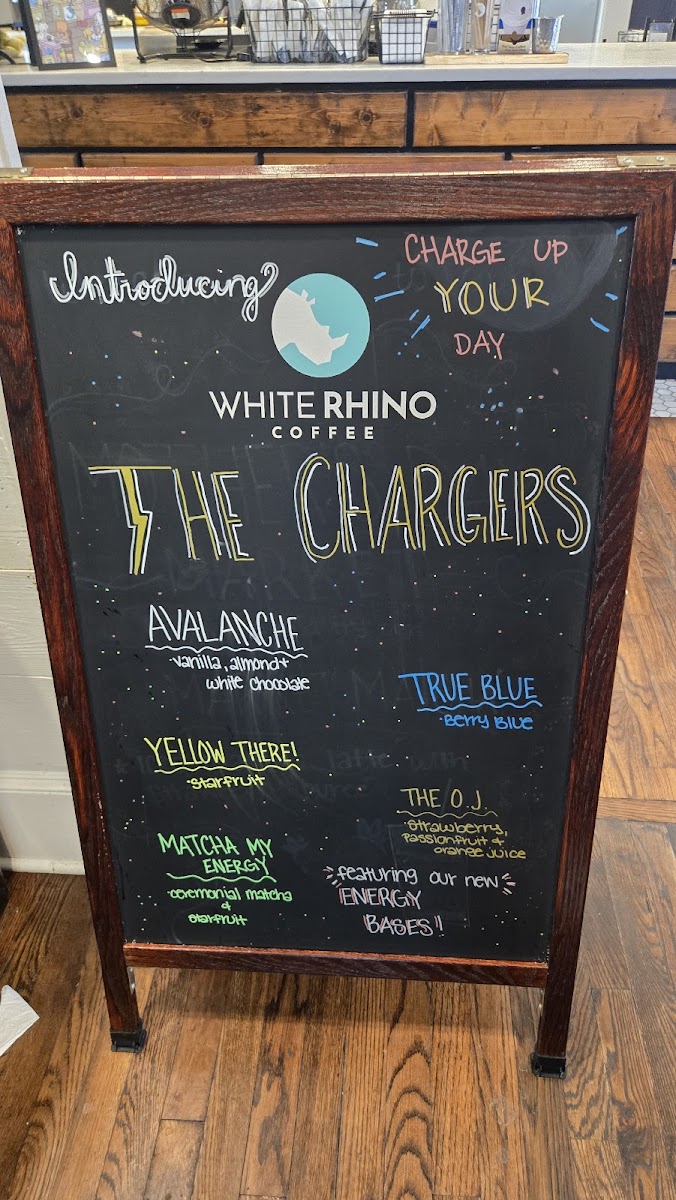 Introducing
CHARGE UP
YOUR
DAY
WHITE RHINO
COFFEE
THE CHARGERS
AVALANCHE
vanilla, almond +
white chocolate
TRUE BLUE
·Berry Blue
YELLOW THERE!
·starfruit
THE O.J.
·strawberry,
passionfruit +
orange juice
MATCHA MY
ENERGY
·ceremonial matcha
&
starfruit
featuring our new
ENERGY
BASES!!